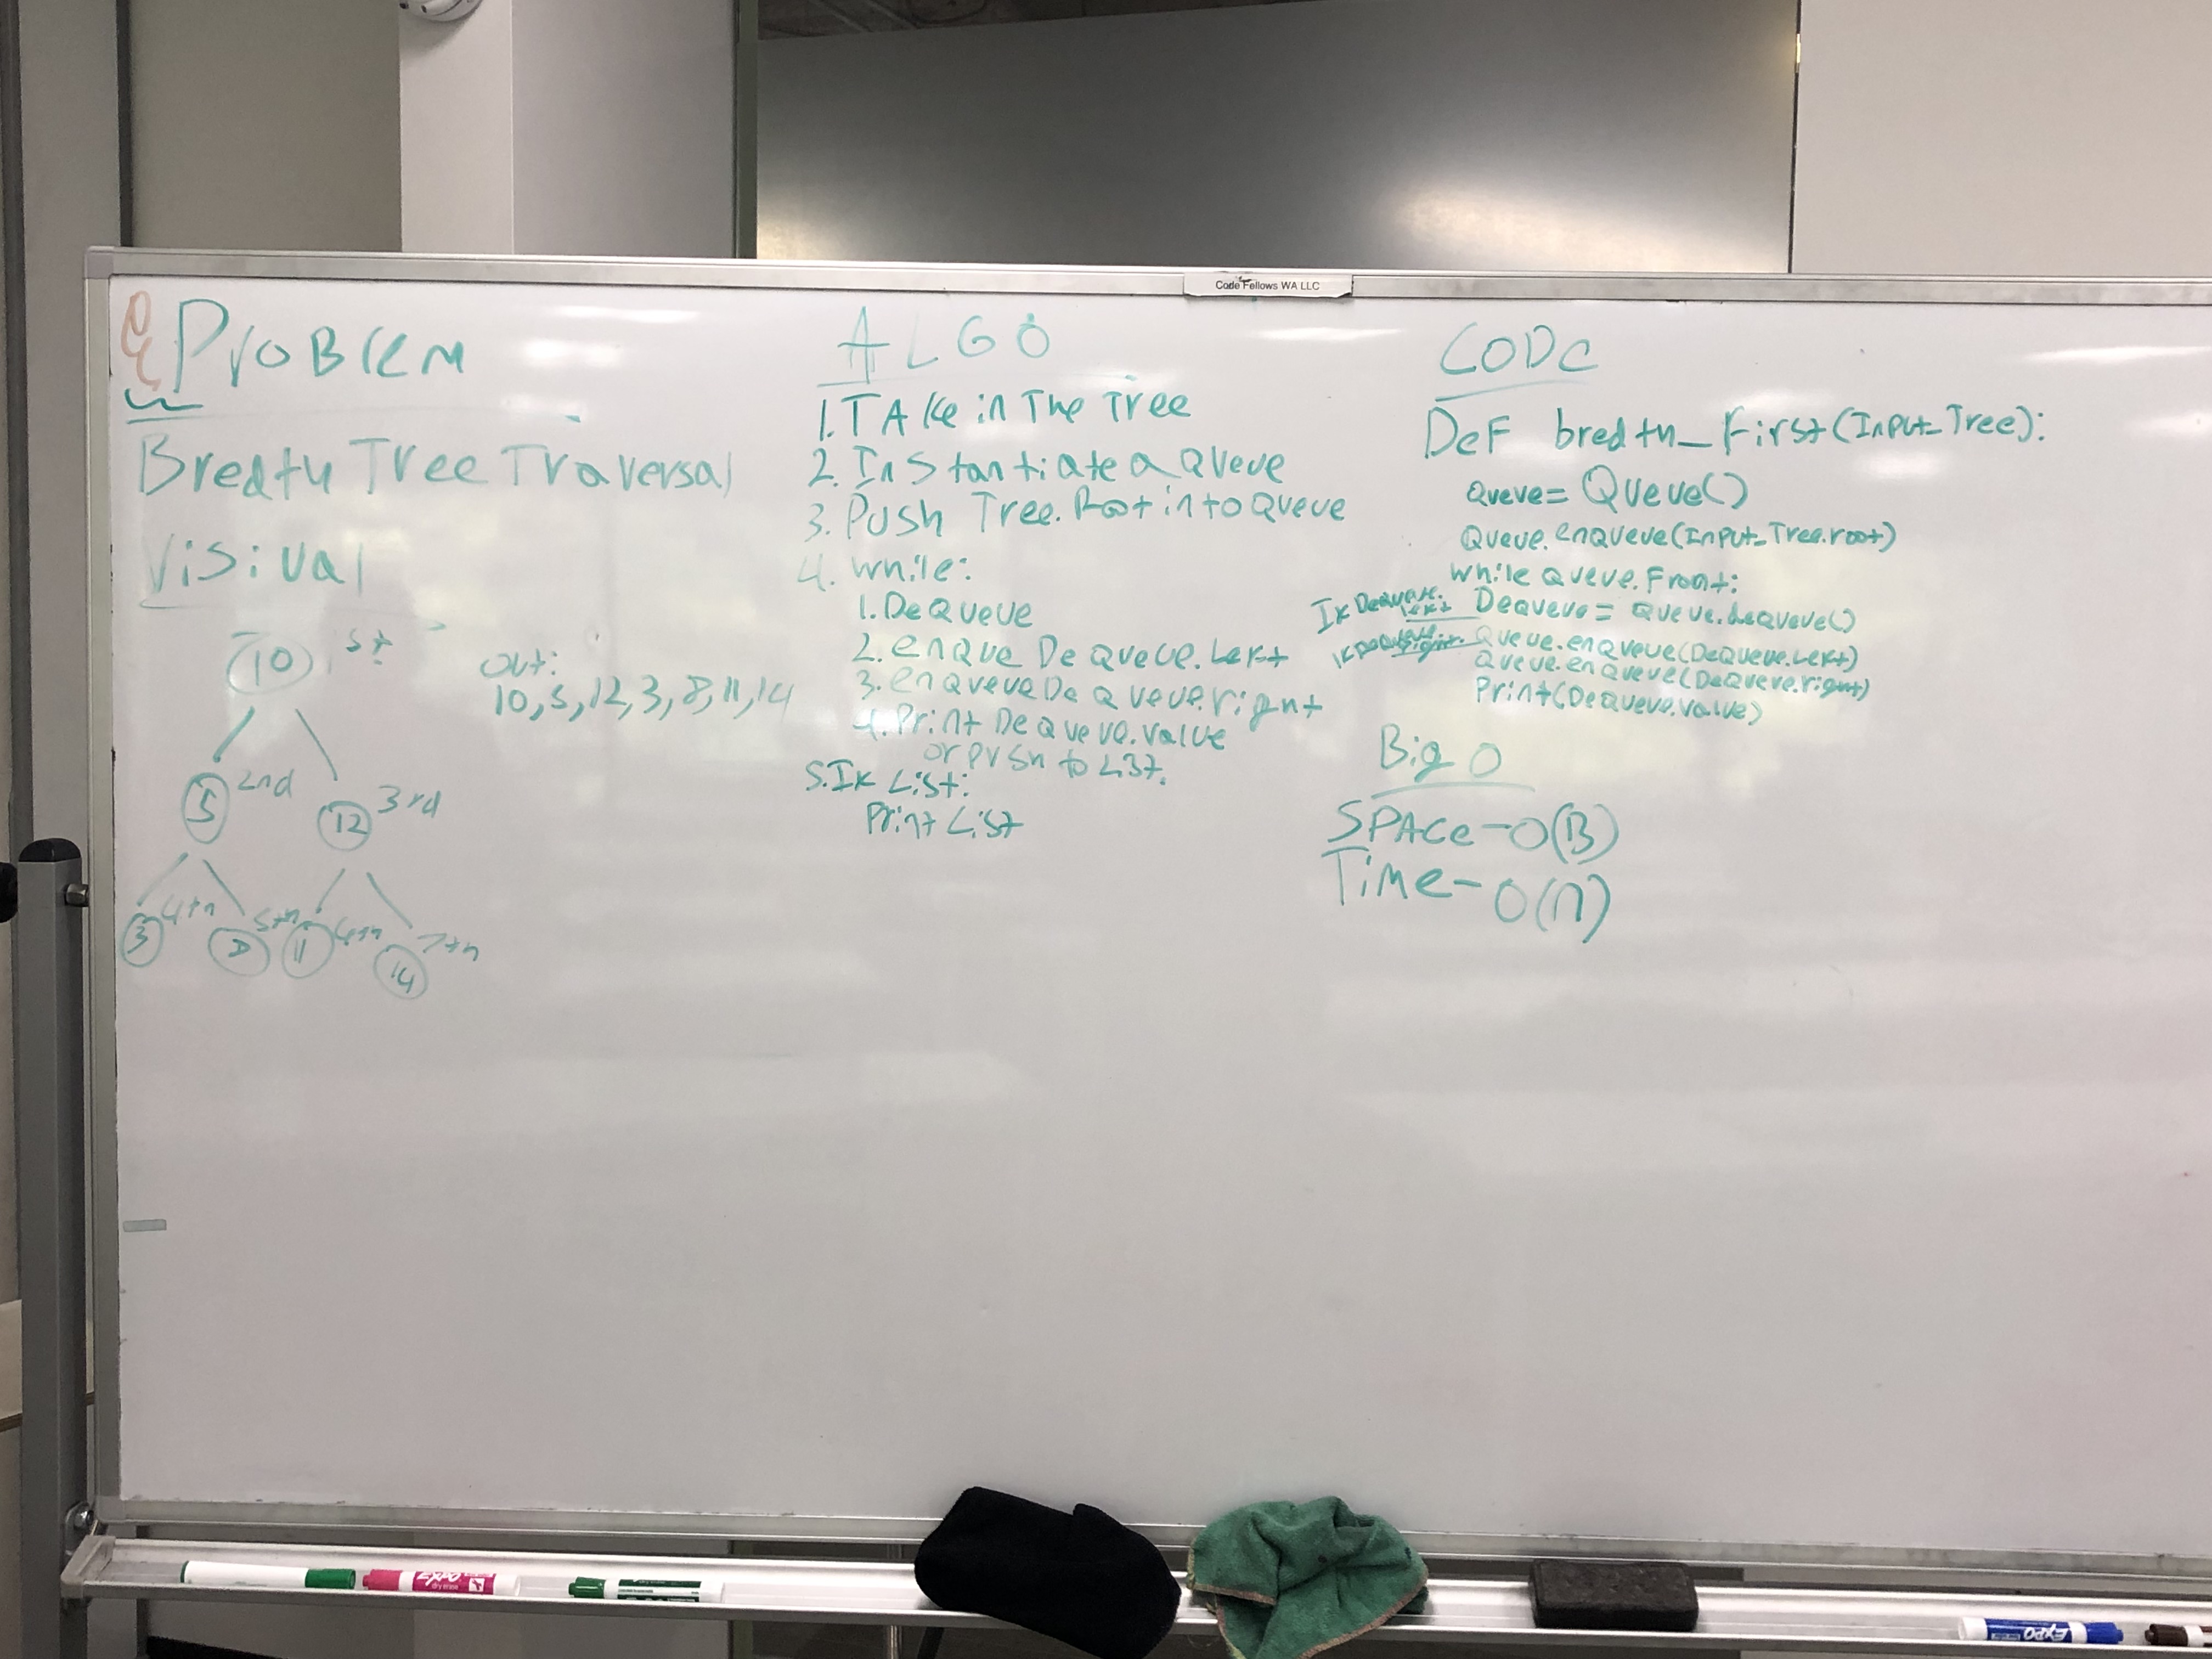 Code Fellows WA LLC
Problem
Bredth Tree Traversal
Visiual
10 1st
out:
10, 5, 12, 3, 8, 11, 14
5 2nd 12 3rd
3 4th 8 5th 11 6th 14 7th
ALGO
1. TAke in The Tree
2. Instantiate a Queue
3. Push Tree.Root into Queue
4. while:
1. DeQueue
2. enque DeQueue.Left
3. enqueue DeQueue.right
4. Print DeQueue.value
or push to List.
5. If List:
Print List
CODe
DeF bredth_First(Input_Tree):
Queue = Queue()
Queue.enQueue(Input_Tree.root)
while Queue.Front:
Dequeue = Queue.deQueue()
If Dequeue.left
Queue.enQueue(DeQueue.Left)
If Dequeue.right
Queue.enQueue(DeQueue.right)
Print(DeQueue.value)
Big O
SPAce - O(B)
Time - O(n)
EXPO
dry erase
EXPO